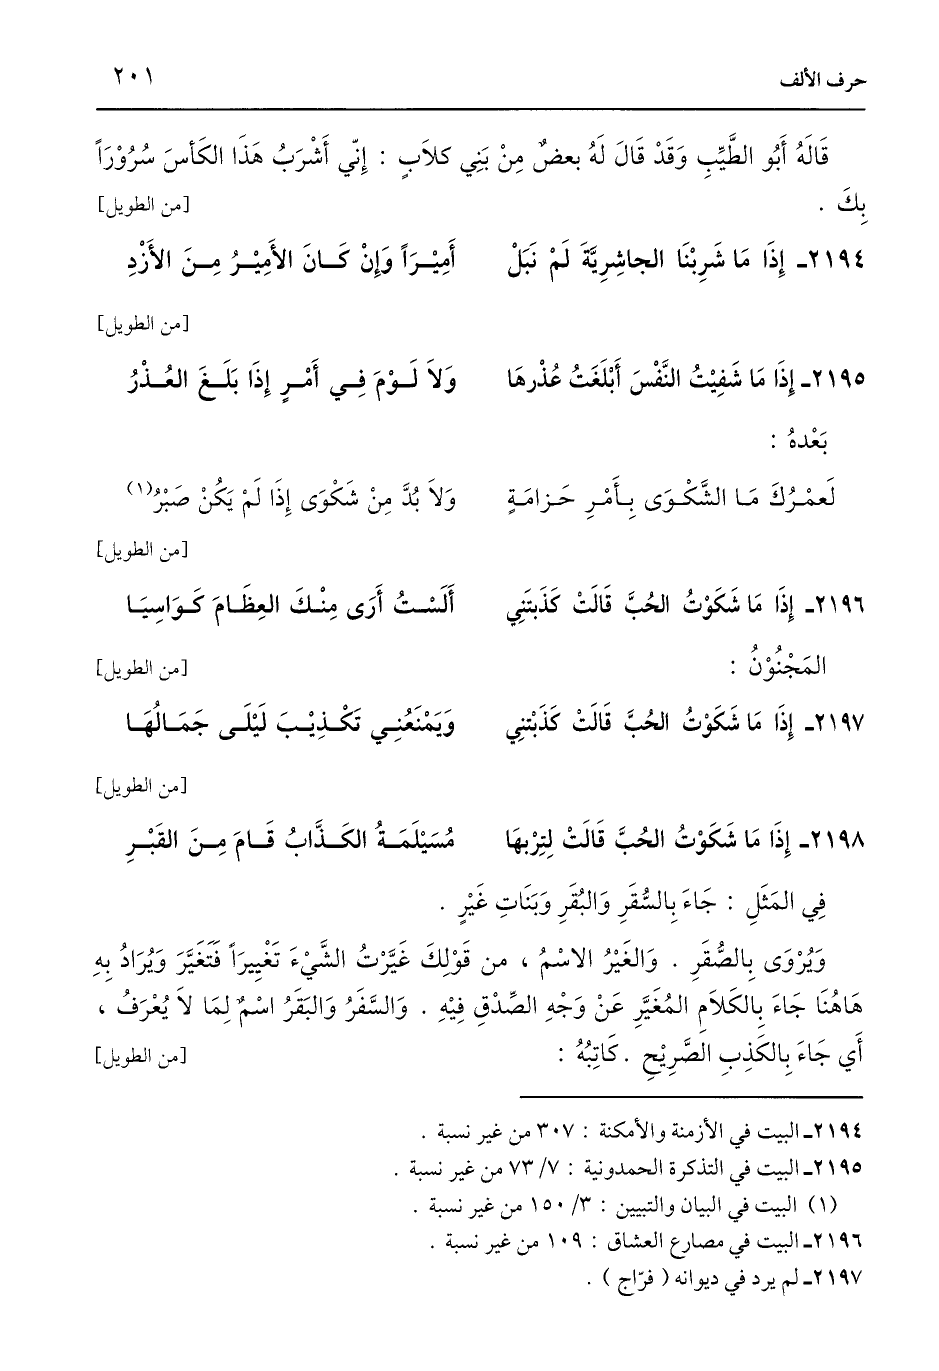 حرف الألف ٢٠١
قَالَهُ أَبُو الطَّيِّبِ وَقَدْ قَالَ لَهُ بعضٌ مِنْ بَنِي كلاَبٍ : إِنّي أَشْرَبُ هَذَا الكَأسَ سُرُوْرَاً
بِكَ . [من الطويل]
٢١٩٤ـ إِذَا مَا شَرِبْنَا الجاشِرِيَّةَ لَمْ نَبَلْ أَمِيْـرَاً وَإِنْ كَـانَ الأَمِيْـرُ مِـنَ الأَزْدِ
[من الطويل]
٢١٩٥ـ إِذَا مَا شَفِيْتُ النَّفْسَ أَبْلَغَتُ عُذْرهَا وَلاَ لَـوْمَ فِـي أَمْـرٍ إِذَا بَلَـغَ العُـذْرُ
بَعْدهُ :
لَعمْـرُكَ مَـا الشَّكْـوَى بِـأَمْـرِ حَـزامَـةٍ وَلاَ بُدَّ مِنْ شَكْوَى إِذَا لَمْ يَكُنْ صَبْرُ(١)
[من الطويل]
٢١٩٦ـ إِذَا مَا شَكَوْتُ الحُبَّ قَالَتْ كَذَبتَنِي أَلَسْـتُ أَرَى مِنْـكَ العِظَـامَ كَـوَاسِيَـا
المَجْنُوْنُ : [من الطويل]
٢١٩٧ـ إِذَا مَا شَكَوْتُ الحُبَّ قَالَتْ كَذَبْتنِي وَيَمْنَعُنِـي تَكْـذِيْـبَ لَيْلَـى جَمَـالُهَـا
[من الطويل]
٢١٩٨ـ إِذَا مَا شَكَوْتُ الحُبَّ قَالَتْ لِتِرْبهَا مُسَيْلَمَـةُ الكَـذَّابُ قَـامَ مِـنَ القَبْـرِ
فِي المَثَلِ : جَاءَ بِالسُّقَرِ وَالبُقَرِ وَبَنَاتِ غَيْرٍ .
وَيُرْوَى بِالصُّقَرِ . وَالغَيْرُ الاسْمُ ، من قَوْلِكَ غَيَّرْتُ الشَّيْءَ تَغْيِيرَاً فَتَغَيَّرَ وَيُرَادُ بِهِ
هَاهُنَا جَاءَ بِالكَلاَمِ المُغَيَّرِ عَنْ وَجْهِ الصِّدْقِ فِيْهِ . وَالسَّفَرُ وَالبَقَرُ اسْمٌ لِمَا لاَ يُعْرَفُ ،
أَي جَاءَ بِالكَذِبِ الصَّرِيْحِ . كَاتِبُهُ : [من الطويل]
٢١٩٤ـ البيت في الأزمنة والأمكنة : ٣٠٧ من غير نسبة .
٢١٩٥ـ البيت في التذكرة الحمدونية : ٧/ ٧٣ من غير نسبة .
(١) البيت في البيان والتبيين : ٣/ ١٥٠ من غير نسبة .
٢١٩٦ـ البيت في مصارع العشاق : ١٠٩ من غير نسبة .
٢١٩٧ـ لم يرد في ديوانه ( فرّاج ) .